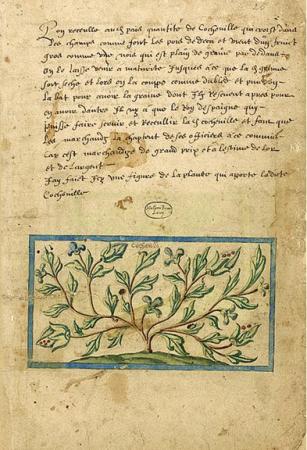 Lon recueille aud pais quantité de Cochenille qui croist dans
des champs comme font les pois de deca et vient d'un fruict
gros comme une nois qui est plain de graine par dedans
on le laisse venir a maturité jusques a ce que la graine
soit seche et lors on la coupe comme du bled et puis on
la bat pour avoir la graine dont Ilz ressement apres pour
en avoir dautre Il ny a que le Roy despaigne qui
puisse faire servir et recueillir la d Cochenille et faut que
les marchandz la achaptent de ses officiers a ce commis
car cest marchandise de grand pris et a lestime de lor
et de largent
Jay faict Icy une figure de la plante qui aporte ladite
Cochenille
Cochenille